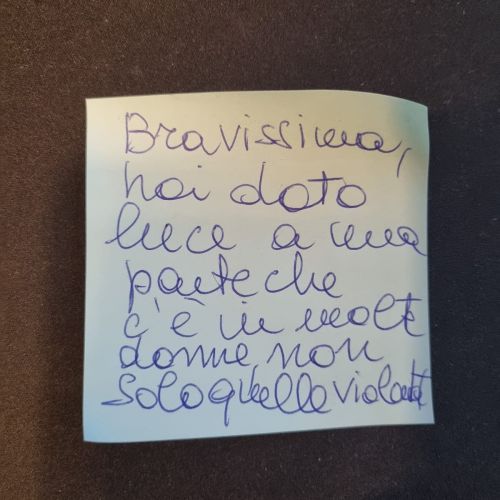 Bravissima,
hai dato
luce a una
parte che
c'è in molte
donne, non
solo quelle violente